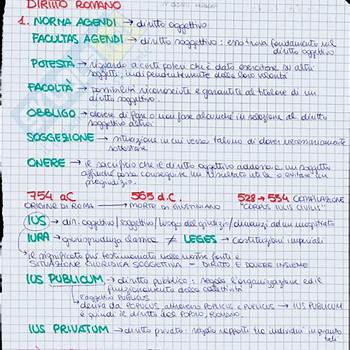 DIRITTO ROMANO
1. NORMA AGENDI → diritto oggettivo
FACULTAS AGENDI → diritto soggettivo: esso trova fondamento nel diritto oggettivo
POTESTÀ → riguardo a certi poteri che è dato esercitare su altri soggetti, indipendentemente dalla loro volontà
FACOLTÀ → possibilità riconosciute e garantite al titolare di un diritto soggettivo.
OBBLIGO → dovere di fare o non fare alcunché in relazione al diritto soggettivo altrui.
SOGGEZIONE → situazioni in cui versa taluno di dover necessariamente
ONERE → il sacrificio che il diritto oggettivo addossa a un soggetto affinché possa conseguire un risultato utile o evitare un pregiudizio.
754 a.C. 565 d.C. 528 → 534 COMPILAZIONE
ORIGINE DI ROMA → MORTE DI GIUSTINIANO "CORPUS IURIS CIVILIS"
IUS → dir. oggettivo / soggettivo / luogo del giudizio / dinanzi ad un magistrato
IURA → giurisprudenza classica ≠ LEGES → costituzioni imperiali
il significato più testimoniato nelle nostre fonti è
SITUAZIONE GIURIDICA SOGGETTIVA - DIRITTO E DOVERE INSIEME
IUS PUBLICUM → diritto pubblico: regola l'organizzazione ed il funzionamento della
l'aggettivo PUBLICUS
deriva da POPULUS, POPLICUS e PUBLICUS → IUS PUBLICUM
è quindi il diritto del POPOLO ROMANO.
IUS PRIVATUM → diritto privato: regola rapporti tra individui in quanto tali